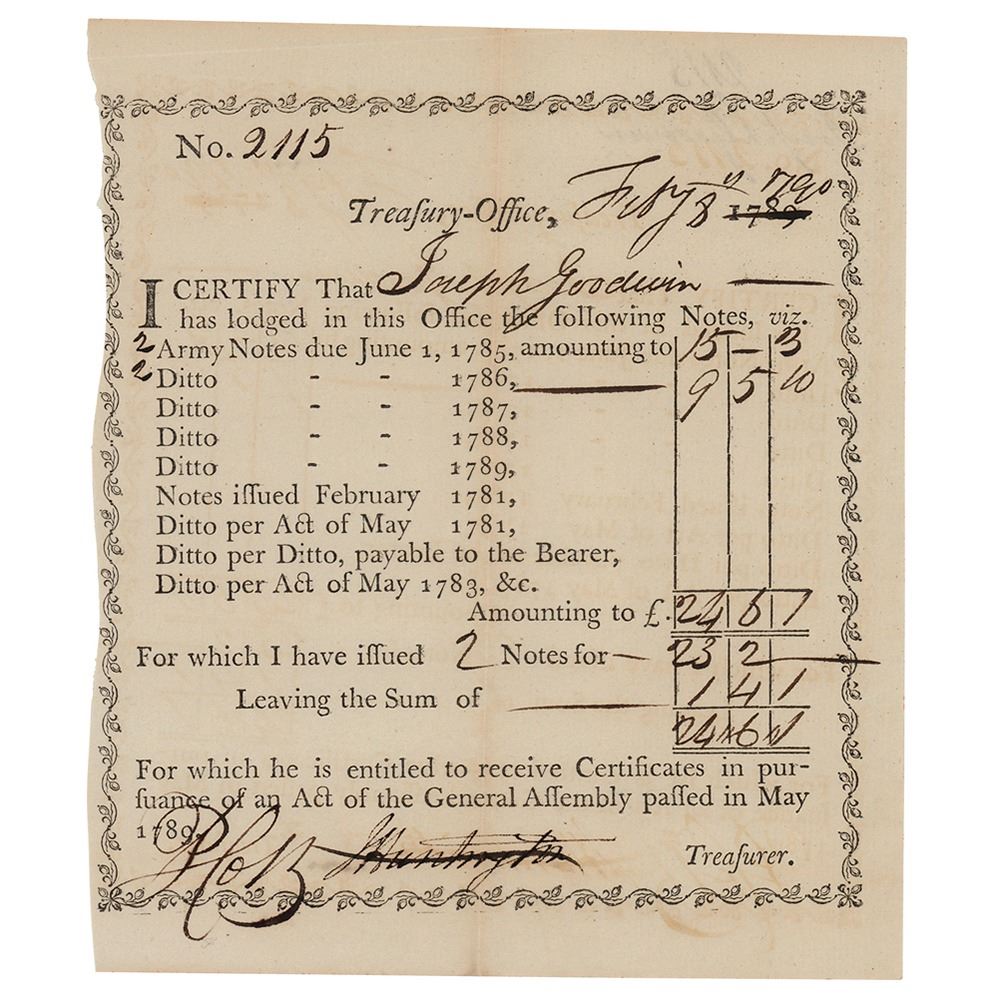 No. 2115
Treaſury-Office, Feby 8 1790 1789
I CERTIFY That Joseph Goodwin
has lodged in this Office the following Notes, viz.
2 Army Notes due June 1, 1785, amounting to 15 — 3
2 Ditto - - 1786, 9 5 10
Ditto - - 1787,
Ditto - - 1788,
Ditto - - 1789,
Notes iſſued February 1781,
Ditto per Act of May 1781,
Ditto per Ditto, payable to the Bearer,
Ditto per Act of May 1783, &c.
Amounting to £. 24 6 1
For which I have iſſued 2 Notes for — 23 2 —
Leaving the Sum of 1 4 1
24 6 1
For which he is entitled to receive Certificates in pur-
ſuance of an Act of the General Aſſembly paſſed in May
1789.
J Huntington Treaſurer.